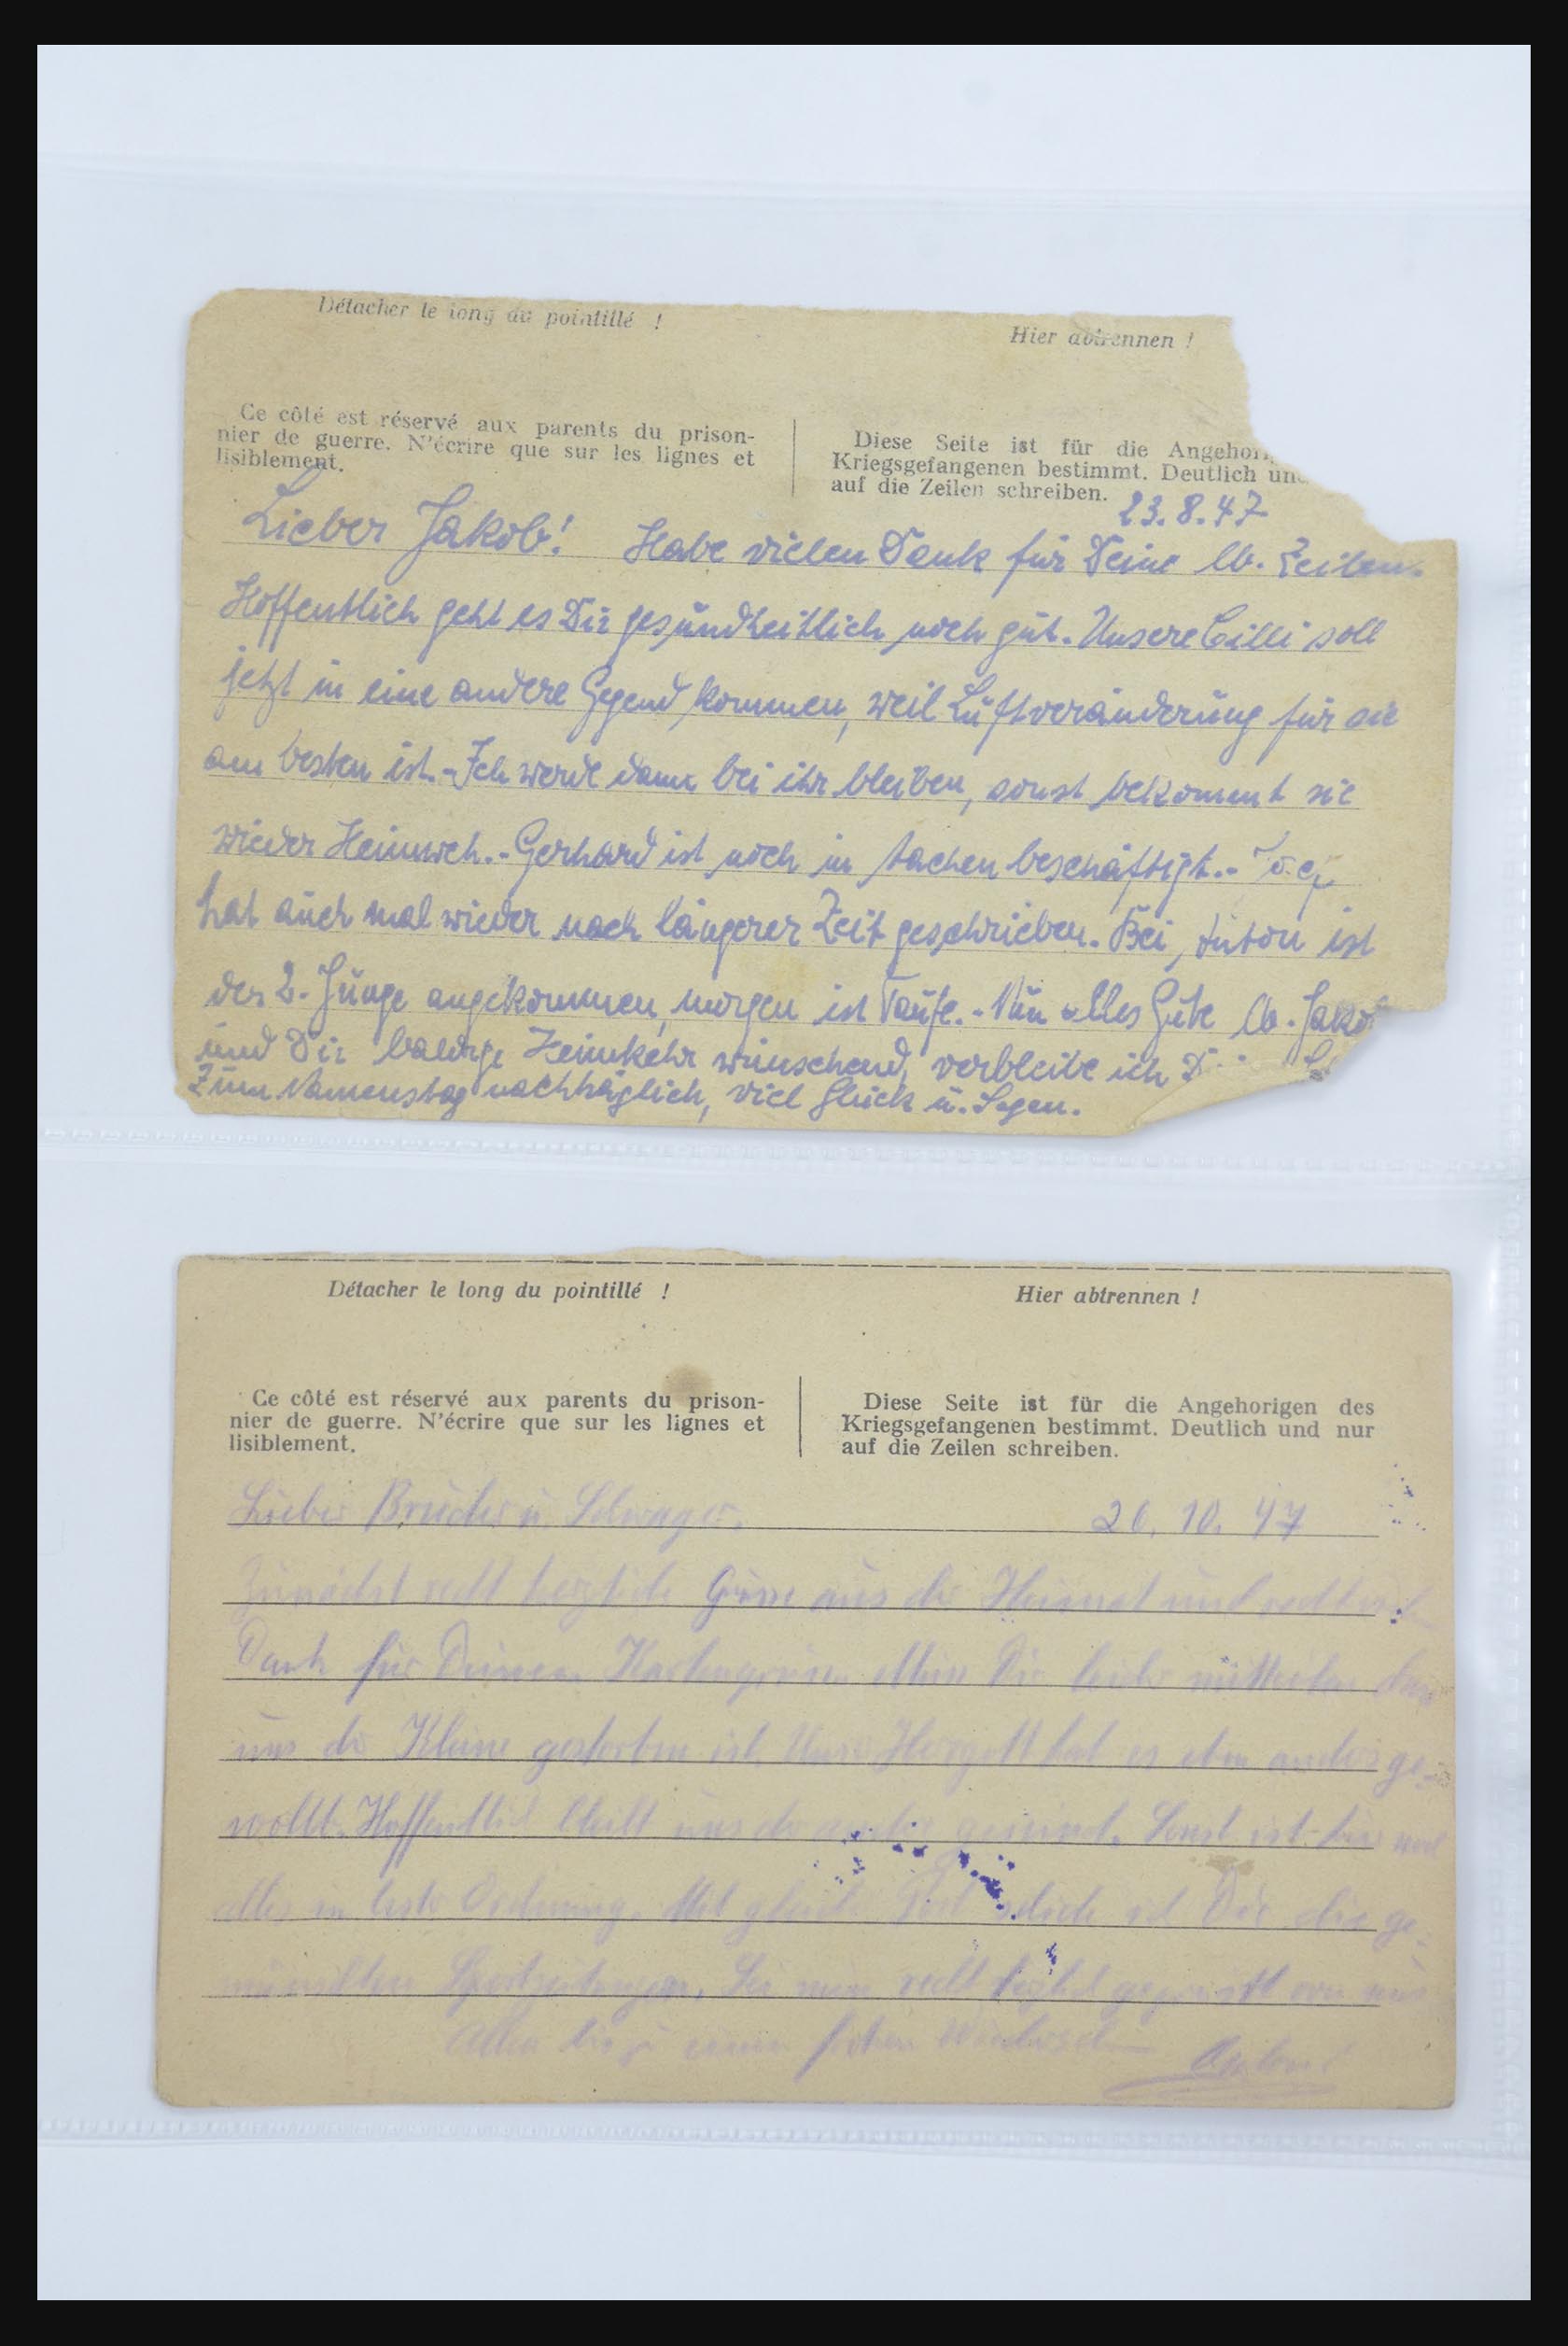 Détacher le long du pointillé !
Hier abtrennen !
Ce côté est réservé aux parents du prison-
nier de guerre. N'écrire que sur les lignes et
lisiblement.
Diese Seite ist für die Angehori
Kriegsgefangenen bestimmt. Deutlich und
auf die Zeilen schreiben.
23.8.47
Lieber Jakob! Habe vielen Dank für Deine lb. Zeilen.
Hoffentlich geht es Dir gesundheitlich noch gut. Unsere Cilli soll
jetzt in eine andere Gegend kommen, weil Luftveränderung für sie
am besten ist.- Ich werde dann bei ihr bleiben, sonst bekommt sie
wieder Heimweh.- Gerhard ist noch in Aachen beschäftigt.-
hat auch mal wieder nach längerer Zeit geschrieben. Bei Anton ist
der 2. Junge angekommen, morgen ist Taufe.- Nun alles Gute lb. Jakob
und Dir baldige Heimkehr wünschend, verbleibe ich
Zum Namenstag nachträglich, viel Glück u. Segen.
Détacher le long du pointillé !
Hier abtrennen !
Ce côté est réservé aux parents du prison-
nier de guerre. N'écrire que sur les lignes et
lisiblement.
Diese Seite ist für die Angehorigen des
Kriegsgefangenen bestimmt. Deutlich und nur
auf die Zeilen schreiben.
Lieber Bruder u. Schwager. 26. 10. 47
Zunächst recht herzliche Grüsse aus der Heimat und recht
Dank für Deinen Kartengruss. Muss Dir leider mitteilen dass
uns die Kleine gestorben ist. Unser Herrgott hat es eben anders ge-
wollt. Hoffentlich bleibt uns der andere gesund. Sonst ist hier noch
alles in bester Ordnung. Mit gleicher Post schicke ich Dir die ge-
wünschten Sportzeitungen. Sei nun recht herzlich gegrüsst von uns
Allen bis auf einen frohen Wiedersehen